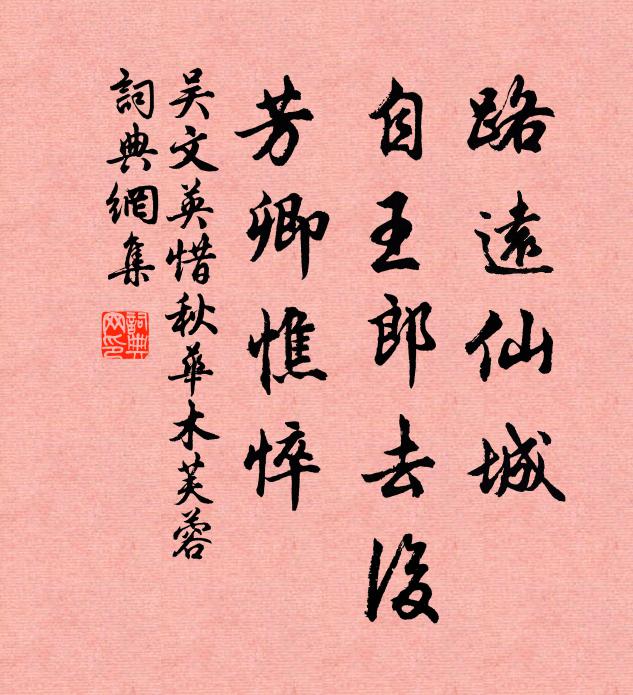 路遠仙城
自王郎去後
芳卿憔悴
吴文英惜秋華木芙蓉
詞典網集
詞典網印